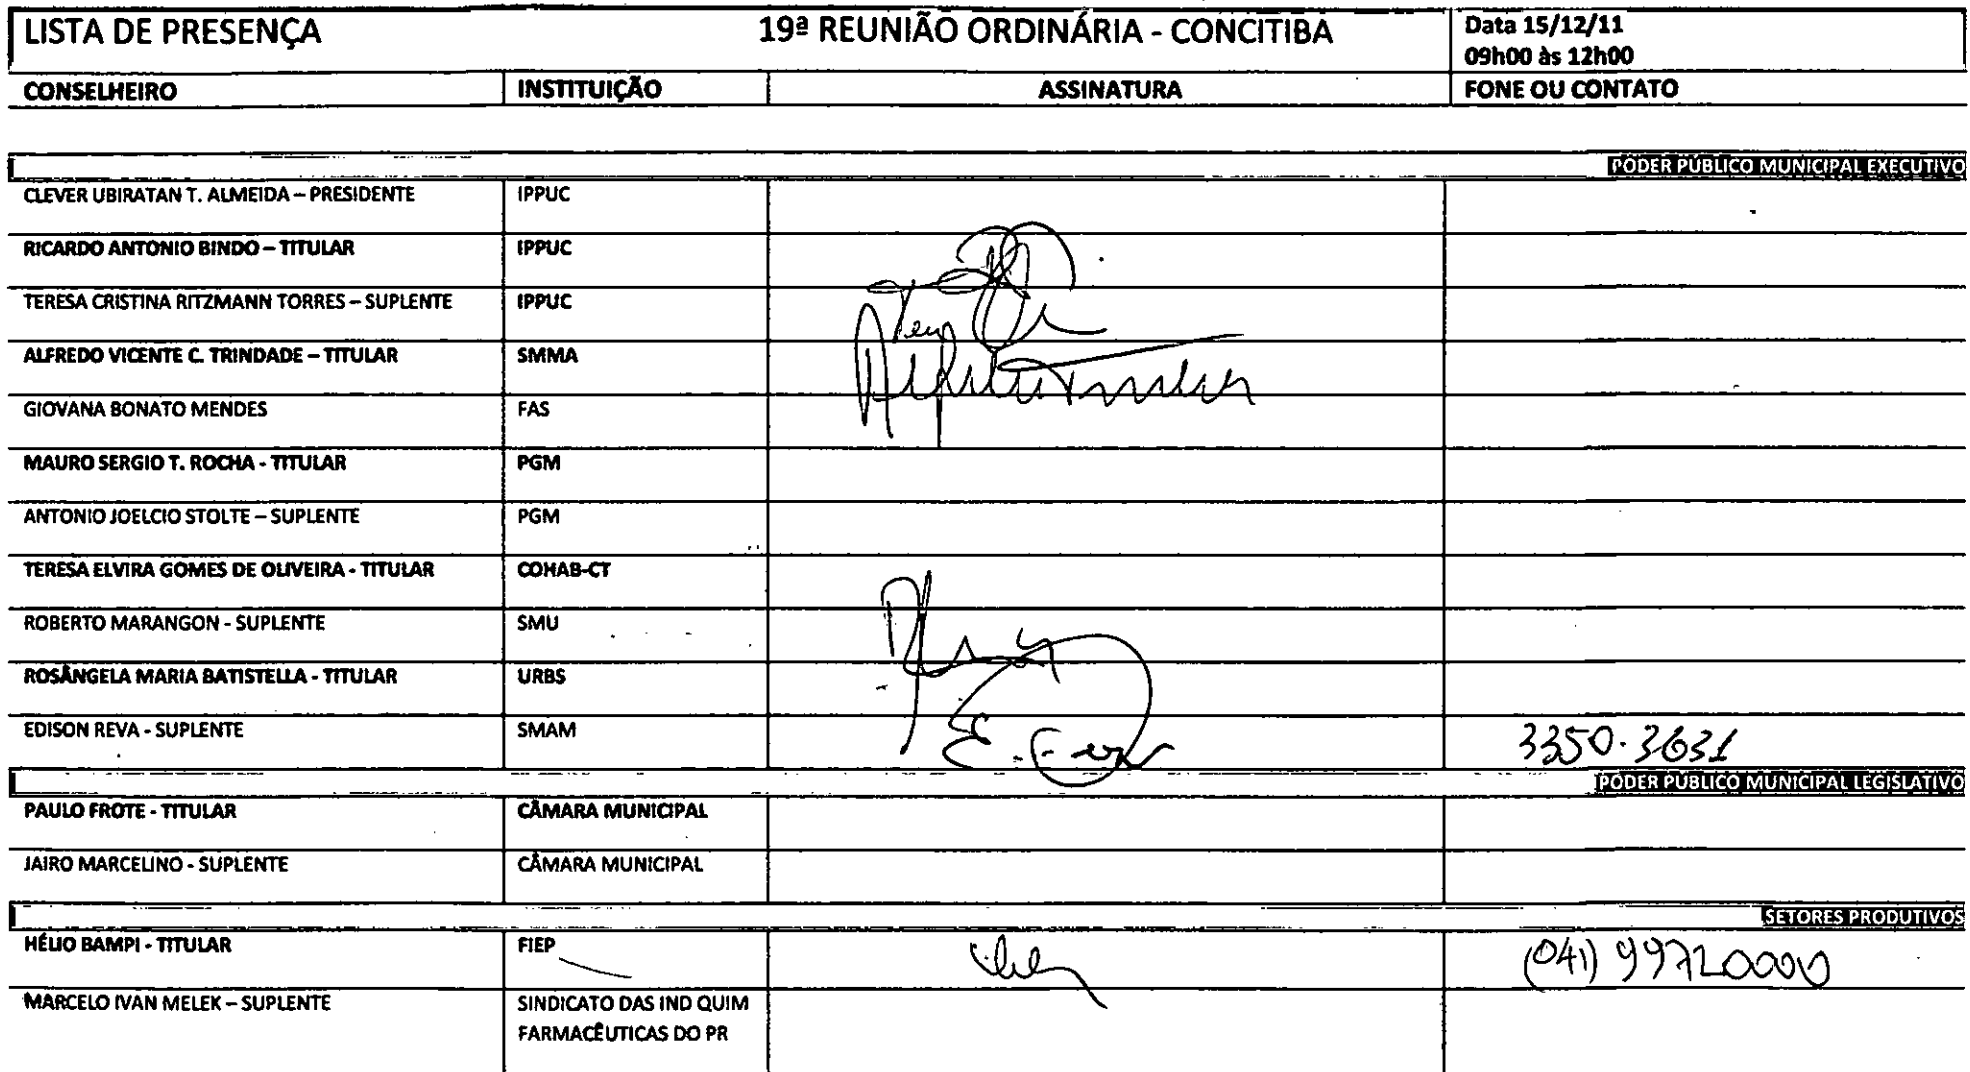 LISTA DE PRESENÇA 19ª REUNIÃO ORDINÁRIA - CONCITIBA Data 15/12/11
09h00 às 12h00
CONSELHEIRO INSTITUIÇÃO ASSINATURA FONE OU CONTATO
PODER PÚBLICO MUNICIPAL EXECUTIVO
CLEVER UBIRATAN T. ALMEIDA – PRESIDENTE IPPUC
RICARDO ANTONIO BINDO – TITULAR IPPUC
TERESA CRISTINA RITZMANN TORRES – SUPLENTE IPPUC
ALFREDO VICENTE C. TRINDADE – TITULAR SMMA
GIOVANA BONATO MENDES FAS
MAURO SERGIO T. ROCHA - TITULAR PGM
ANTONIO JOELCIO STOLTE – SUPLENTE PGM
TERESA ELVIRA GOMES DE OLIVEIRA - TITULAR COHAB-CT
ROBERTO MARANGON - SUPLENTE SMU
ROSÂNGELA MARIA BATISTELLA - TITULAR URBS
EDISON REVA - SUPLENTE SMAM 3350-3631
PODER PÚBLICO MUNICIPAL LEGISLATIVO
PAULO FROTE - TITULAR CÂMARA MUNICIPAL
JAIRO MARCELINO - SUPLENTE CÂMARA MUNICIPAL
SETORES PRODUTIVOS
HÉLIO BAMPI - TITULAR FIEP (041) 99720000
MARCELO IVAN MELEK – SUPLENTE SINDICATO DAS IND QUIM
FARMACÊUTICAS DO PR